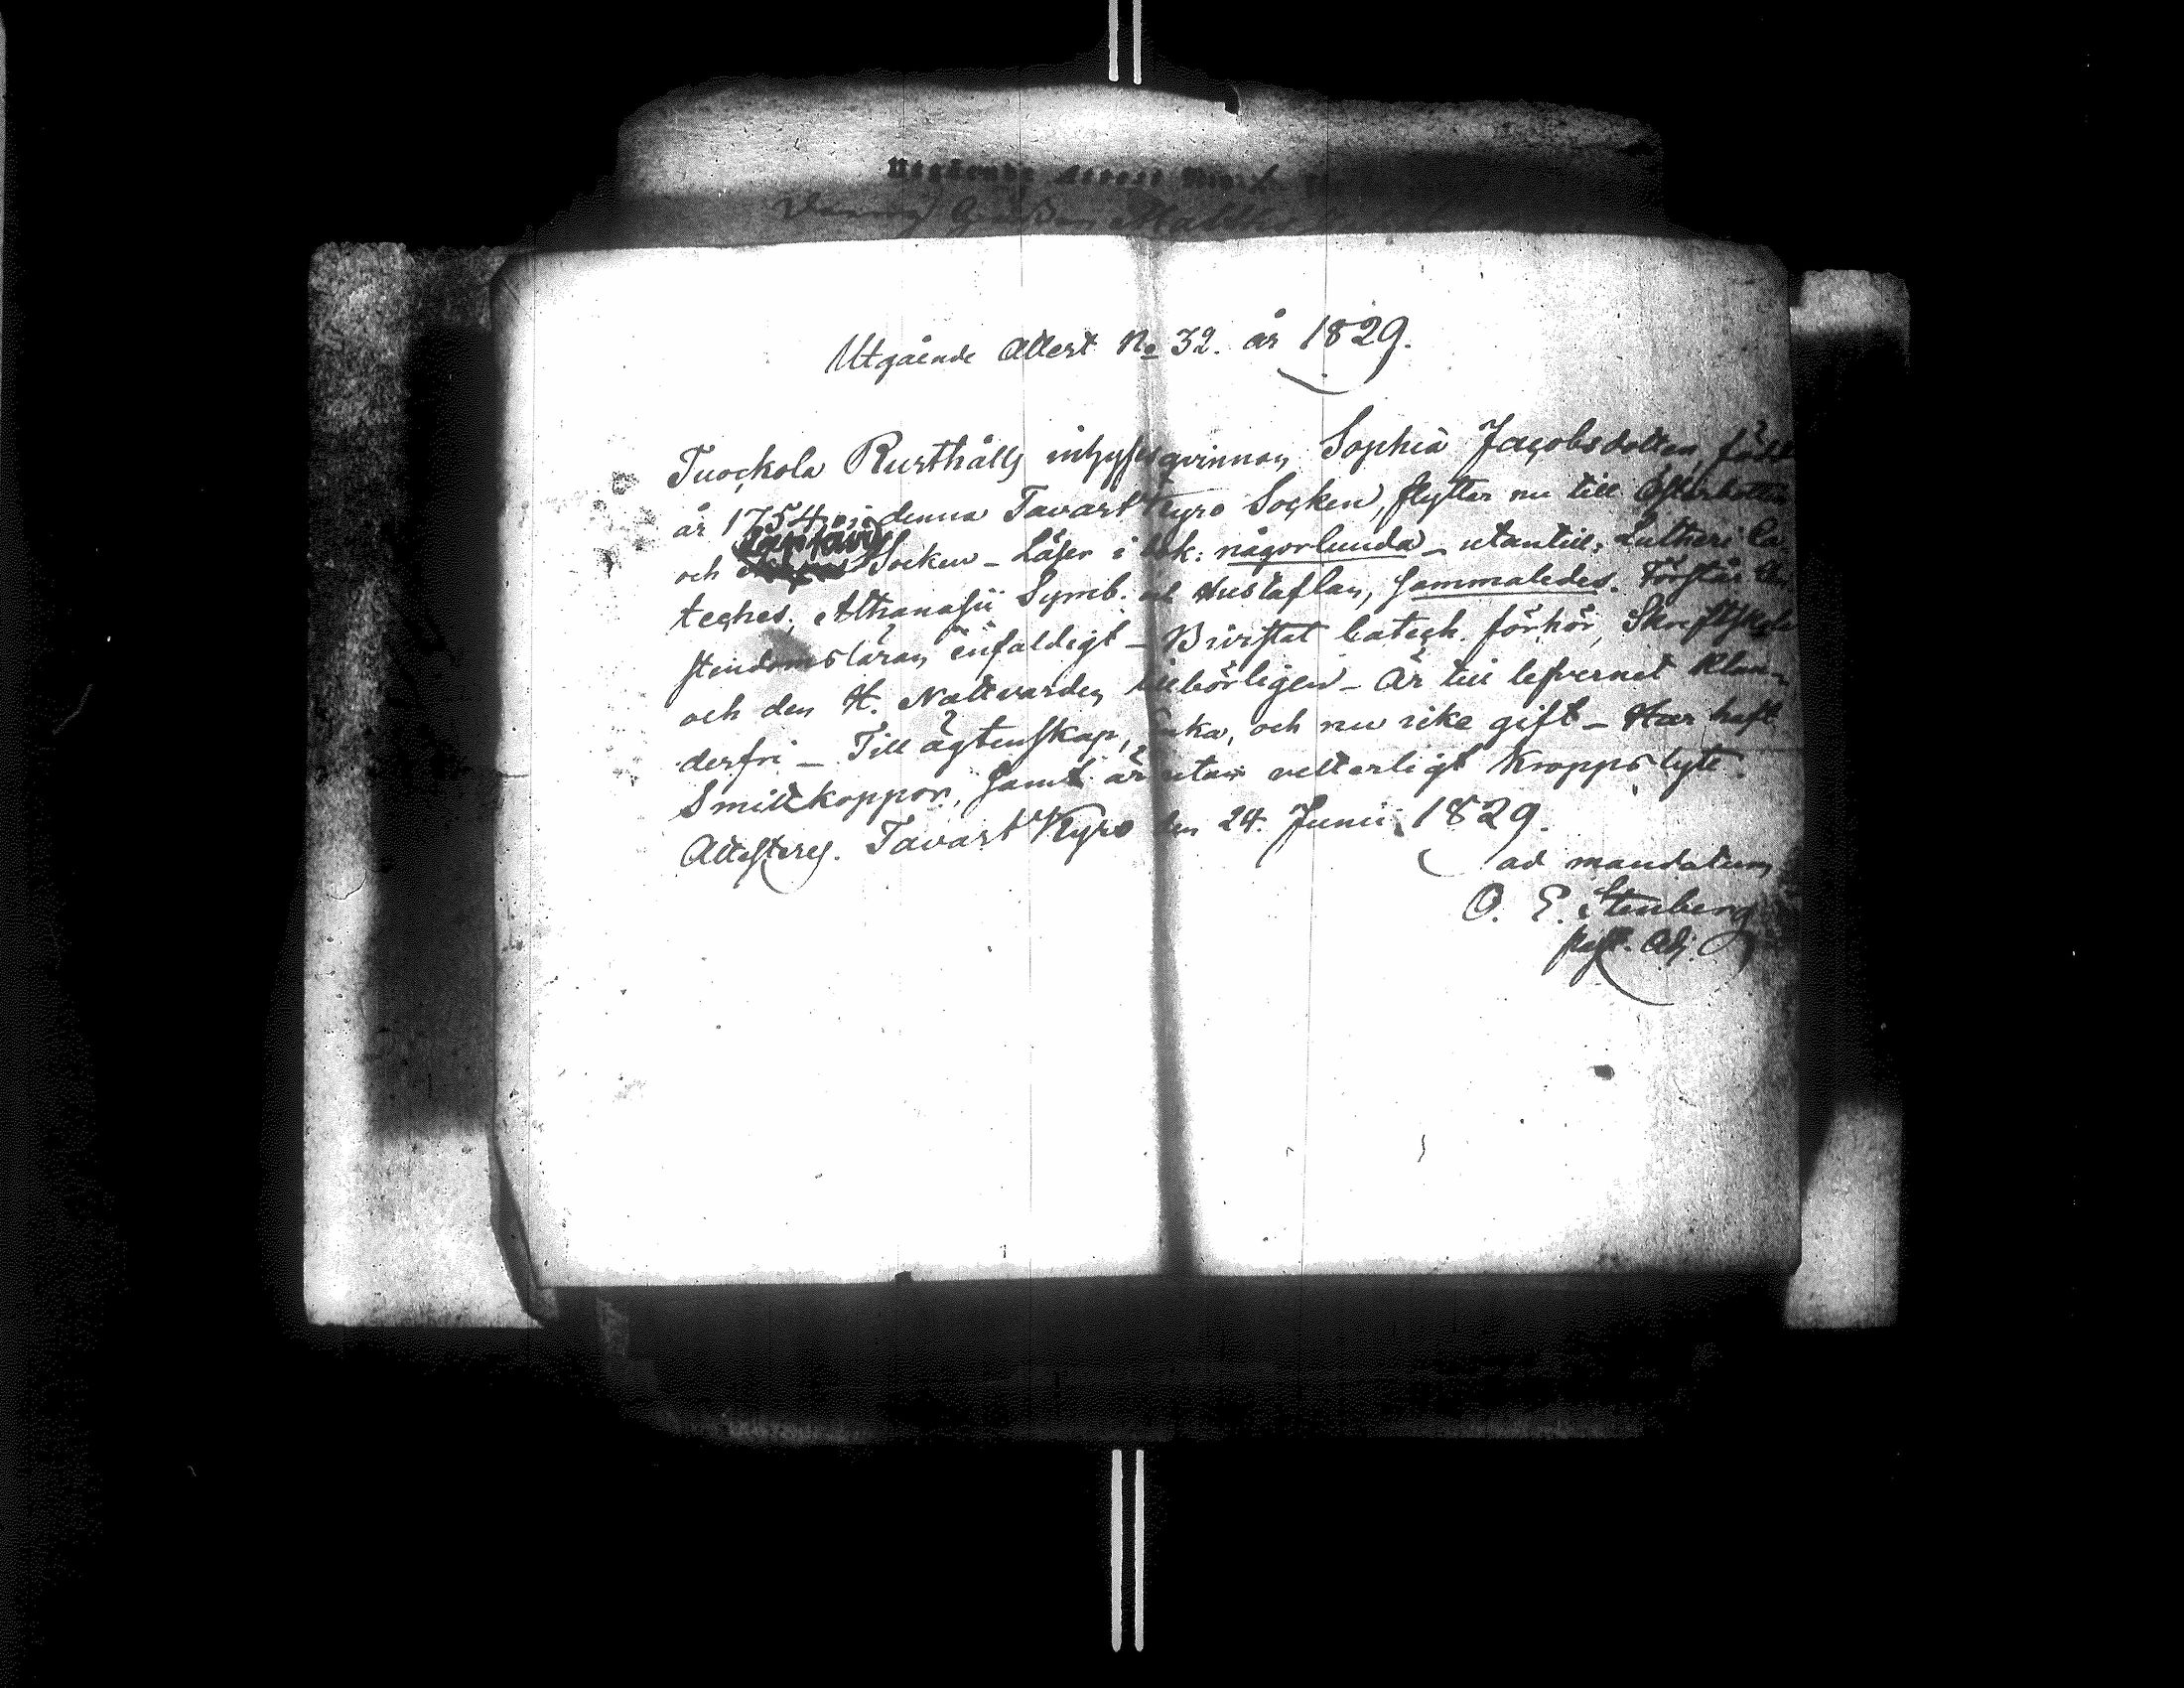 Utgående Attest
Utgående Attest No 32. år 1829.
Tuockola Rusthålls inhysesqvinnan Sophia Jacobsdotter, född
år 1754, i denna Tavast Kyro Socken, flyttar nu till Österbotten
och Socken – Läser i bok: någorlunda – utantill: Lutheri Ca-
teches, Athanasii Symb. och Hustaflan, sammaledes. Förstår
stendomsläran enfaldigt – Bivistat Catech. förhör, Skriftskola
och den H. Nattvarden tillbörligen – Är till lefvernet klan-
derfri – Till ägtenskap, Enka, och nu icke gift – Har haft
Smittkoppor, samt är utan vetterligt Kroppslyte.
Attesteras. Tavast Kyro den 24. Junii 1829.
ad mandatum
O. E. Stenberg
past. Adj.